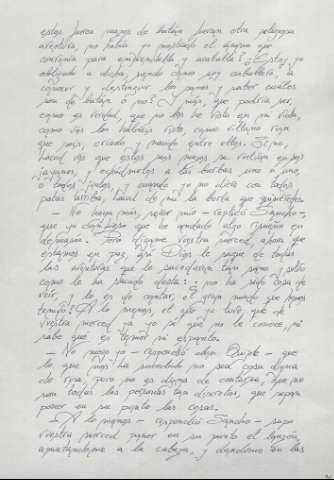 estos fueran mazos de batán fueran otra peligrosa
aventura, no había yo mostrado el ánimo que
convenía para emprendella y acaballa? ¿Estoy yo
obligado a dicha, siendo como soy caballero, a
conocer y destinguir los sones y saber cuáles
son de batán o no? Y más, que podría ser,
como es verdad, que no los he visto en mi vida,
como vos los habréis visto, como villano ruin
que sois, criado y nacido entre ellos. Si no,
haced vos que estos seis mazos se vuelvan en seis
jayanes, y echádmelos a las barbas uno a uno,
o todos juntos, y cuando yo no diere con todos
patas arriba, haced de mí la burla que quisiéredes.
— No haya más, señor mío — replicó Sancho —,
que yo confieso que he andado algo risueño en
demasía. Pero dígame vuestra merced, ahora que
estamos en paz, así Dios le saque de todas
las aventuras que le sucedieren tan sano y salvo
como le ha sacado desta: ¿no ha sido cosa de
reír, y lo es de contar, el gran miedo que hemos
tenido? A lo menos, el que yo tuve que de
vuestra merced ya yo sé que no le conoce, ni
sabe qué es temor ni espanto.
— No niego yo — respondió don Quijote — que
lo que nos ha sucedido no sea cosa digna
de risa, pero no es digna de contarse, que no
son todas las personas tan discretas, que sepan
poner en su punto las cosas.
— A lo menos — respondió Sancho — supo
vuestra merced poner en su punto el lanzón,
apuntándome a la cabeza, y dándome en las